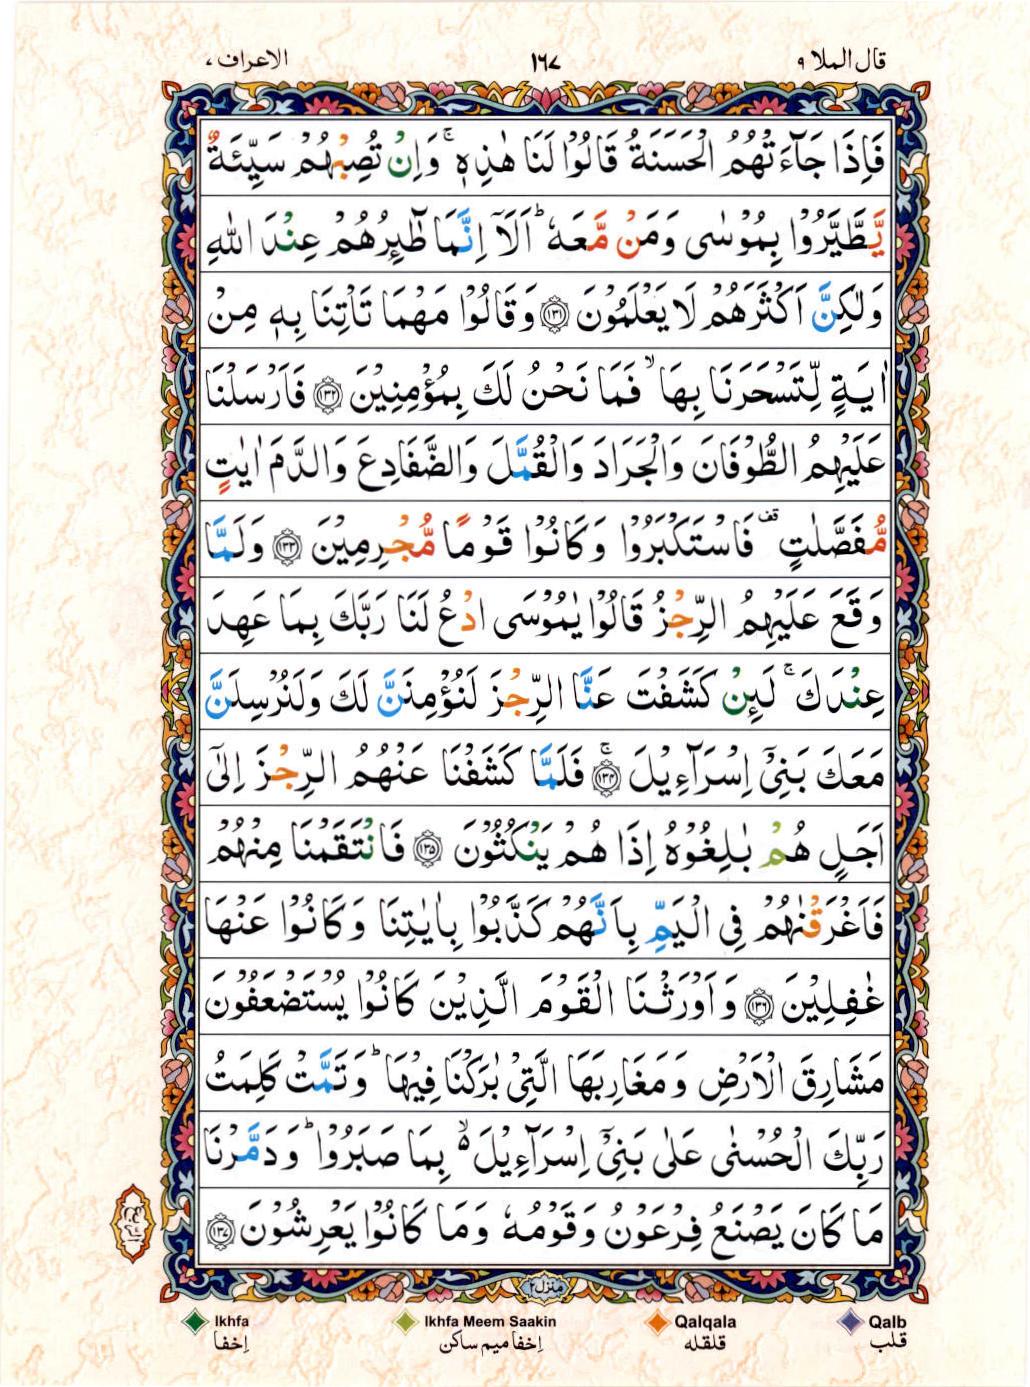 قال الملا ۹ ۱۶۷ الاعراف ۷
فَاِذَا جَآءَتْهُمُ الْحَسَنَةُ قَالُوْا لَنَا هٰذِهٖ ۚ وَاِنْ تُصِبْهُمْ سَيِّئَةٌ
يَّطَّيَّرُوْا بِمُوْسٰى وَمَنْ مَّعَهٗ ؕ اَلَاۤ اِنَّمَا طٰٓئِرُهُمْ عِنْدَ اللّٰهِ
وَلٰكِنَّ اَكْثَرَهُمْ لَا يَعْلَمُوْنَ ﴿۱۳۱﴾ وَقَالُوْا مَهْمَا تَاْتِنَا بِهٖ مِنْ
اٰيَةٍ لِّتَسْحَرَنَا بِهَا ۙ فَمَا نَحْنُ لَكَ بِمُؤْمِنِيْنَ ﴿۱۳۲﴾ فَاَرْسَلْنَا
عَلَيْهِمُ الطُّوْفَانَ وَالْجَرَادَ وَالْقُمَّلَ وَالضَّفَادِعَ وَالدَّمَ اٰيٰتٍ
مُّفَصَّلٰتٍ قف فَاسْتَكْبَرُوْا وَكَانُوْا قَوْمًا مُّجْرِمِيْنَ ﴿۱۳۳﴾ وَلَمَّا
وَقَعَ عَلَيْهِمُ الرِّجْزُ قَالُوْا يٰمُوْسَى ادْعُ لَنَا رَبَّكَ بِمَا عَهِدَ
عِنْدَكَ ۚ لَئِنْ كَشَفْتَ عَنَّا الرِّجْزَ لَنُؤْمِنَنَّ لَكَ وَلَنُرْسِلَنَّ
مَعَكَ بَنِيْۤ اِسْرَآءِيْلَ ﴿۱۳۴﴾ ۚ فَلَمَّا كَشَفْنَا عَنْهُمُ الرِّجْزَ اِلٰۤى
اَجَلٍ هُمْ بٰلِغُوْهُ اِذَا هُمْ يَنْكُثُوْنَ ﴿۱۳۵﴾ فَانْتَقَمْنَا مِنْهُمْ
فَاَغْرَقْنٰهُمْ فِي الْيَمِّ بِاَنَّهُمْ كَذَّبُوْا بِاٰيٰتِنَا وَكَانُوْا عَنْهَا
غٰفِلِيْنَ ﴿۱۳۶﴾ وَاَوْرَثْنَا الْقَوْمَ الَّذِيْنَ كَانُوْا يُسْتَضْعَفُوْنَ
مَشَارِقَ الْاَرْضِ وَمَغَارِبَهَا الَّتِيْ بٰرَكْنَا فِيْهَا ؕ وَتَمَّتْ كَلِمَتُ
رَبِّكَ الْحُسْنٰى عَلٰى بَنِيْۤ اِسْرَآءِيْلَ ۙ۬ بِمَا صَبَرُوْا ؕ وَدَمَّرْنَا
مَا كَانَ يَصْنَعُ فِرْعَوْنُ وَقَوْمُهٗ وَمَا كَانُوْا يَعْرِشُوْنَ ﴿۱۳۷﴾
منزل ۲
Ikhfa Ikhfa Meem Saakin Qalqala Qalb
اِخفا اِخفا میم ساکن قلقله قلب